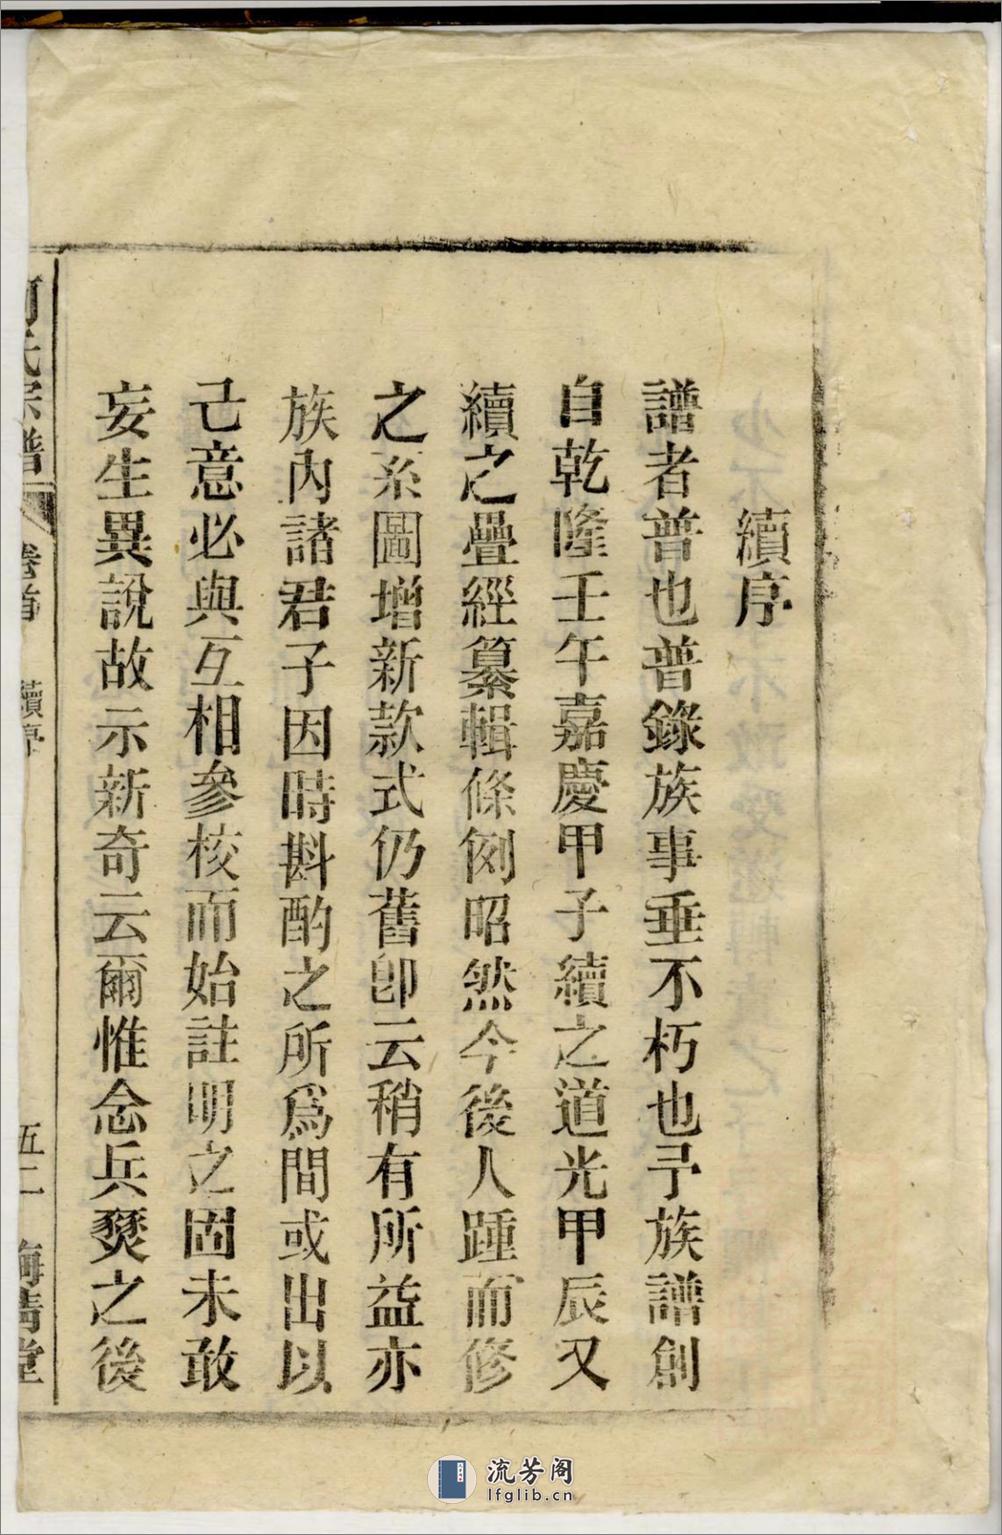 續序
譜者普也普錄族事垂不朽也予族譜創
自乾隆壬午嘉慶甲子續之道光甲辰又
續之疊經纂輯條例昭然今後人踵而修
之系圖增新款式仍舊卽云稍有所益亦
族內諸君子因時斟酌之所爲間或出以
己意必與互相參校而始註明之固未敢
妄生異說故示新奇云爾惟念兵燹之後
何氏宗譜 卷首 續序 五二 堂
流芳阁
lfglib.cn